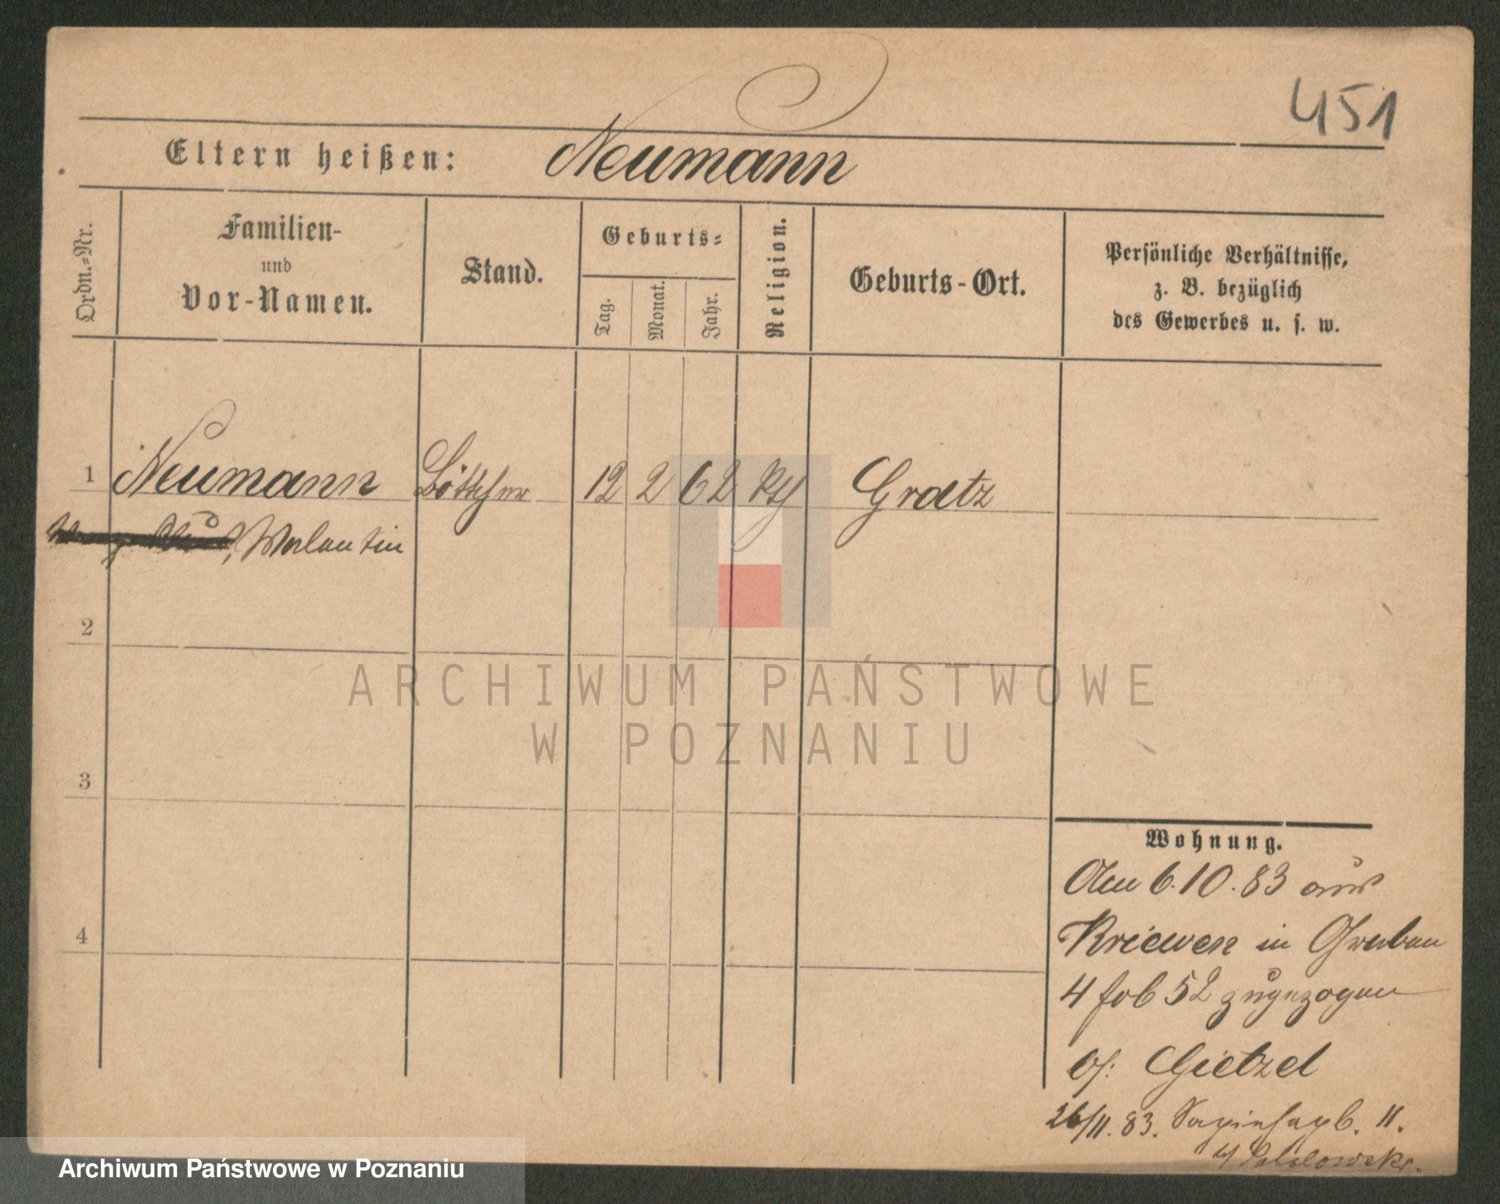 451
Eltern heißen: Neumann
Ordn.-Nr.
Familien-
und
Vor-Namen.
Stand.
Geburts-
Tag.
Monat.
Jahr.
Religion.
Geburts-Ort.
Persönliche Verhältnisse,
z. B. bezüglich
des Gewerbes u. s. w.
1 Neumann Böttcher 12 2 62 Graetz
Valentin
2
3
4
Wohnung.
Am 6.10.83 aus
Kriewen in Graben
4 zugezogen
Gietzel
26/11.83. 11.
ARCHIWUM PAŃSTWOWE
W POZNANIU
Archiwum Państwowe w Poznaniu